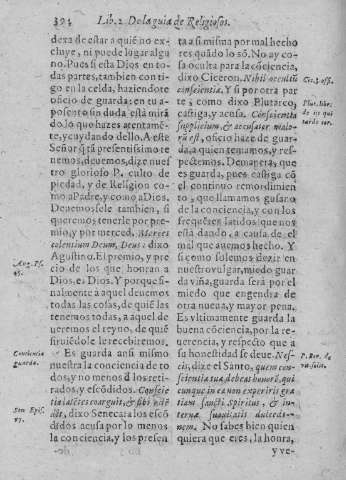 394 Lib. 2. De la guia de Religiosos.
dexa de estar a quiẽ no ex-
cluye, ni puede lugar algu
no. Pues si esta Dios en to-
das partes, tambien con ti-
go en la celda, haziendote
oficio de guarda: en tu a-
posento sin duda està mirã
do lo que hazes atentamẽ-
te, y cuydando dello. A este
Señor q̃ tã presentissimo te
nemos, deuemos, dize nues
tro glorioso P. culto de
piedad, y de Religion co-
mo a Padre, y como a Dios.
Deuemosle tambien, si
queremos tenerle por pre-
mio, y por merced. Merces
colentium Deum, Deus: dixo
Agustino. El premio, y pre
cio de los que honran a
Dios, es Dios. Y porque fi-
nalmente a aquel deuemos
todas las cosas, de quiẽ las
tenemos todas, a aquel de
ueremos el reyno, de quiẽ
siruiẽdole le recebiremos.
Aug. Ps.
Es guarda ansi mismo
nuestra la conciencia de to
dos, y no menos d̃ los reti-
rados, y escõdidos. Conscie
dixo Seneca a los escõ
didos acusa por lo menos
la conciencia, y los presen
Conciencia
guarda.
Sen. Epis.
97.
ta a si misma por mal hecho
res quãdo lo son. No ay co
sa oculta para la cõciencia,
dixo Ciceron. Nihil occulti
conscientia. Y si por otra par
te, como dixo Plutarco,
castiga, y acusa. Conscientia
supplicium, & accusator malo-
rũ est, oficio haze de guar-
da, a quien temamos, y res-
pectemos. De manera, que
es guarda, pues castiga cõ
el continuo remordimien
to, que llamamos gusano
de la conciencia, y con los
frequẽtes latidos que nos
està dando, a causa de el
mal que auemos hecho. Y
si como solemos dezir en
nuestro vulgar, miedo guar
da viña, guarda serà por el
miedo que engendra de
otra nueua, y mayor pena.
Es vltimamente guarda la
buena cõciencia, por la re-
uerencia, y respecto que a
su honestidad se deue. Nes-
cis, dize el Santo, quem con-
scientia tua debeat honorẽ, qui
cunque in ea non experiris gra
tiam sancti Spiritus, & in-
ternæ suauitatis dulcedi-
nem. No sabes bien quien
quiera que eres, la honra,
y ve-
Cic. 3. off.
Plut. libr.